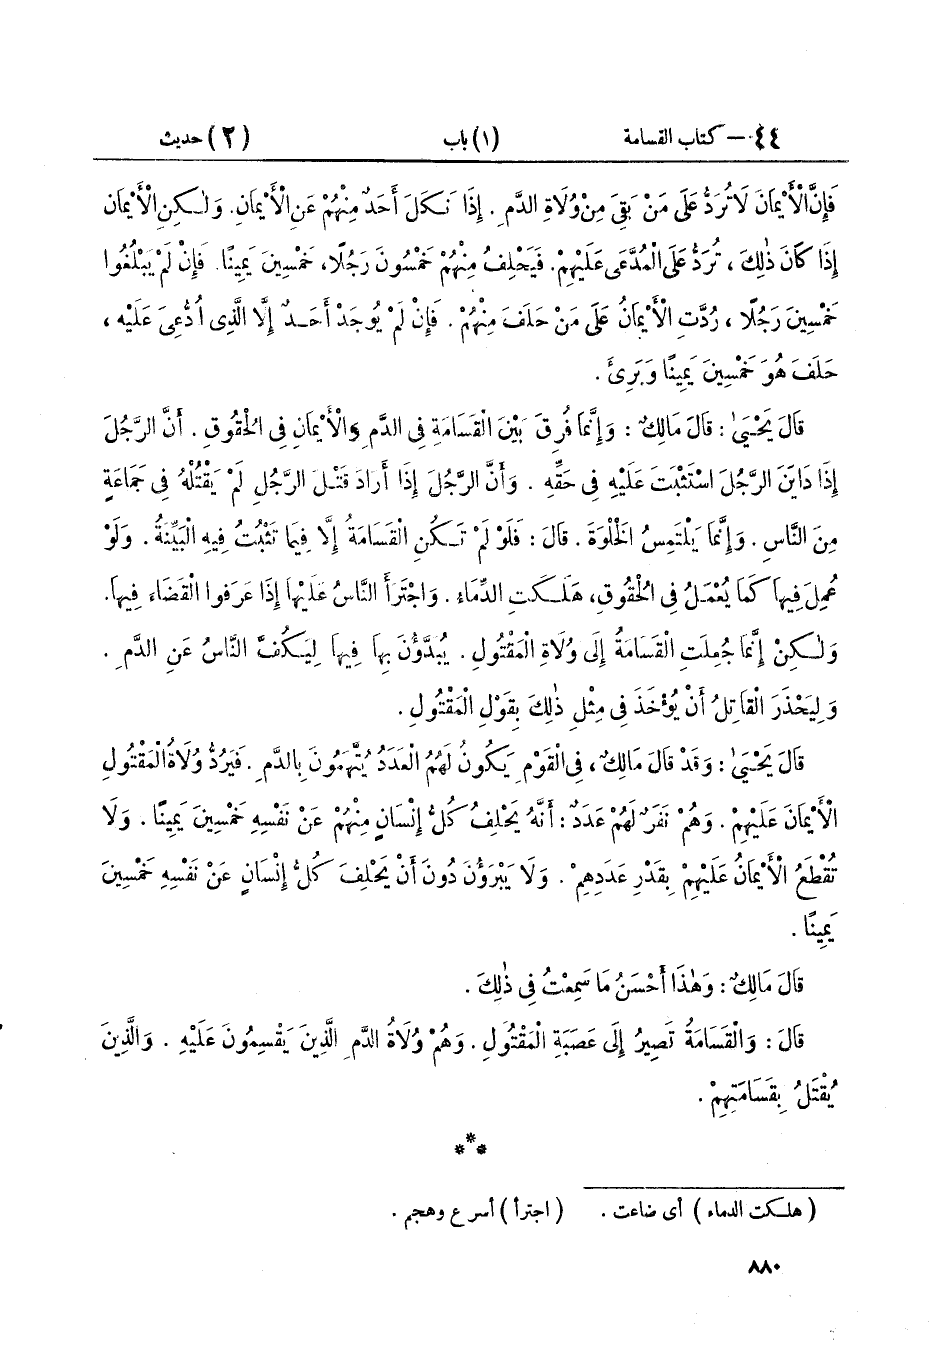 ٤٤ – كتاب القسامة (١) باب (٢) حديث
فَإِنَّ الْأَيْمَانَ لَا تُرَدُّ عَلَى مَنْ بَقِيَ مِنْ وُلَاةِ الدَّمِ . إِذَا نَكَلَ أَحَدٌ مِنْهُمْ عَنِ الْأَيْمَانِ. وَلٰكِنِ الْأَيْمَانُ
إِذَا كَانَ ذٰلِكَ ، تُرَدُّ عَلَى الْمُدَّعَى عَلَيْهِمْ. فَيَحْلِفُ مِنْهُمْ خَمْسُونَ رَجُلًا، خَمْسِينَ يَمِينًا. فَإِنْ لَمْ يَبْلُغُوا
خَمْسِينَ رَجُلًا ، رُدَّتِ الْأَيْمَانُ عَلَى مَنْ حَلَفَ مِنْهُمْ . فَإِنْ لَمْ يُوجَدْ أَحَدٌ إِلَّا الَّذِي ادُّعِيَ عَلَيْهِ ،
حَلَفَ هُوَ خَمْسِينَ يَمِينًا وَبَرِئَ .
قَالَ يَحْيَىٰ : قَالَ مَالِكٌ : وَإِنَّمَا فُرِقَ بَيْنَ الْقَسَامَةِ فِي الدَّمِ وَالْأَيْمَانِ فِي الْحُقُوقِ . أَنَّ الرَّجُلَ
إِذَا دَايَنَ الرَّجُلَ اسْتَثْبَتَ عَلَيْهِ فِي حَقِّهِ . وَأَنَّ الرَّجُلَ إِذَا أَرَادَ قَتْلَ الرَّجُلِ لَمْ يَقْتُلْهُ فِي جَمَاعَةٍ
مِنَ النَّاسِ . وَإِنَّمَا يَلْتَمِسُ الْخَلْوَةَ . قَالَ : فَلَوْ لَمْ تَكُنِ الْقَسَامَةُ إِلَّا فِيمَا تَثْبُتُ فِيهِ الْبَيِّنَةُ . وَلَوْ
عُمِلَ فِيهَا كَمَا يُعْمَلُ فِي الْحُقُوقِ، هَلَكَتِ الدِّمَاءُ . وَاجْتَرَأَ النَّاسُ عَلَيْهَا إِذَا عَرَفُوا الْقَضَاءَ فِيهَا.
وَلٰكِنْ إِنَّمَا جُعِلَتِ الْقَسَامَةُ إِلَى وُلَاةِ الْمَقْتُولِ . يُبَدَّؤُنَ بِهَا فِيهَا لِيَكُفَّ النَّاسُ عَنِ الدَّمِ .
وَلِيَحْذَرَ الْقَاتِلُ أَنْ يُؤْخَذَ فِي مِثْلِ ذٰلِكَ بِقَوْلِ الْمَقْتُولِ .
قَالَ يَحْيَىٰ : وَقَدْ قَالَ مَالِكٌ، فِي الْقَوْمِ يَكُونُ لَهُمُ الْعَدَدُ يُتَّهَمُونَ بِالدَّمِ . فَيَرُدُّ وُلَاةُ الْمَقْتُولِ
الْأَيْمَانَ عَلَيْهِمْ . وَهُمْ نَفَرٌ لَهُمْ عَدَدٌ : أَنَّهُ يَحْلِفُ كُلُّ إِنْسَانٍ مِنْهُمْ عَنْ نَفْسِهِ خَمْسِينَ يَمِينًا . وَلَا
تُقْطَعُ الْأَيْمَانُ عَلَيْهِمْ بِقَدْرِ عَدَدِهِمْ . وَلَا يَبْرَؤُنَ دُونَ أَنْ يَحْلِفَ كُلُّ إِنْسَانٍ عَنْ نَفْسِهِ خَمْسِينَ
يَمِينًا .
قَالَ مَالِكٌ : وَهٰذَا أَحْسَنُ مَا سَمِعْتُ فِي ذٰلِكَ .
قَالَ : وَالْقَسَامَةُ تَصِيرُ إِلَى عَصَبَةِ الْمَقْتُولِ . وَهُمْ وُلَاةُ الدَّمِ الَّذِينَ يَقْسِمُونَ عَلَيْهِ . وَالَّذِينَ
يُقْتَلُ بِقَسَامَتِهِمْ .
***
( هلكت الدماء ) أى ضاعت . ( اجترأ ) أسرع وهجم .
٨٨٠